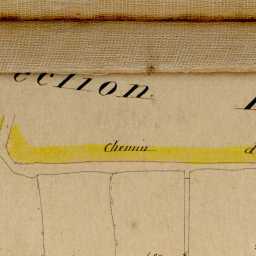 ection.
Chemin d